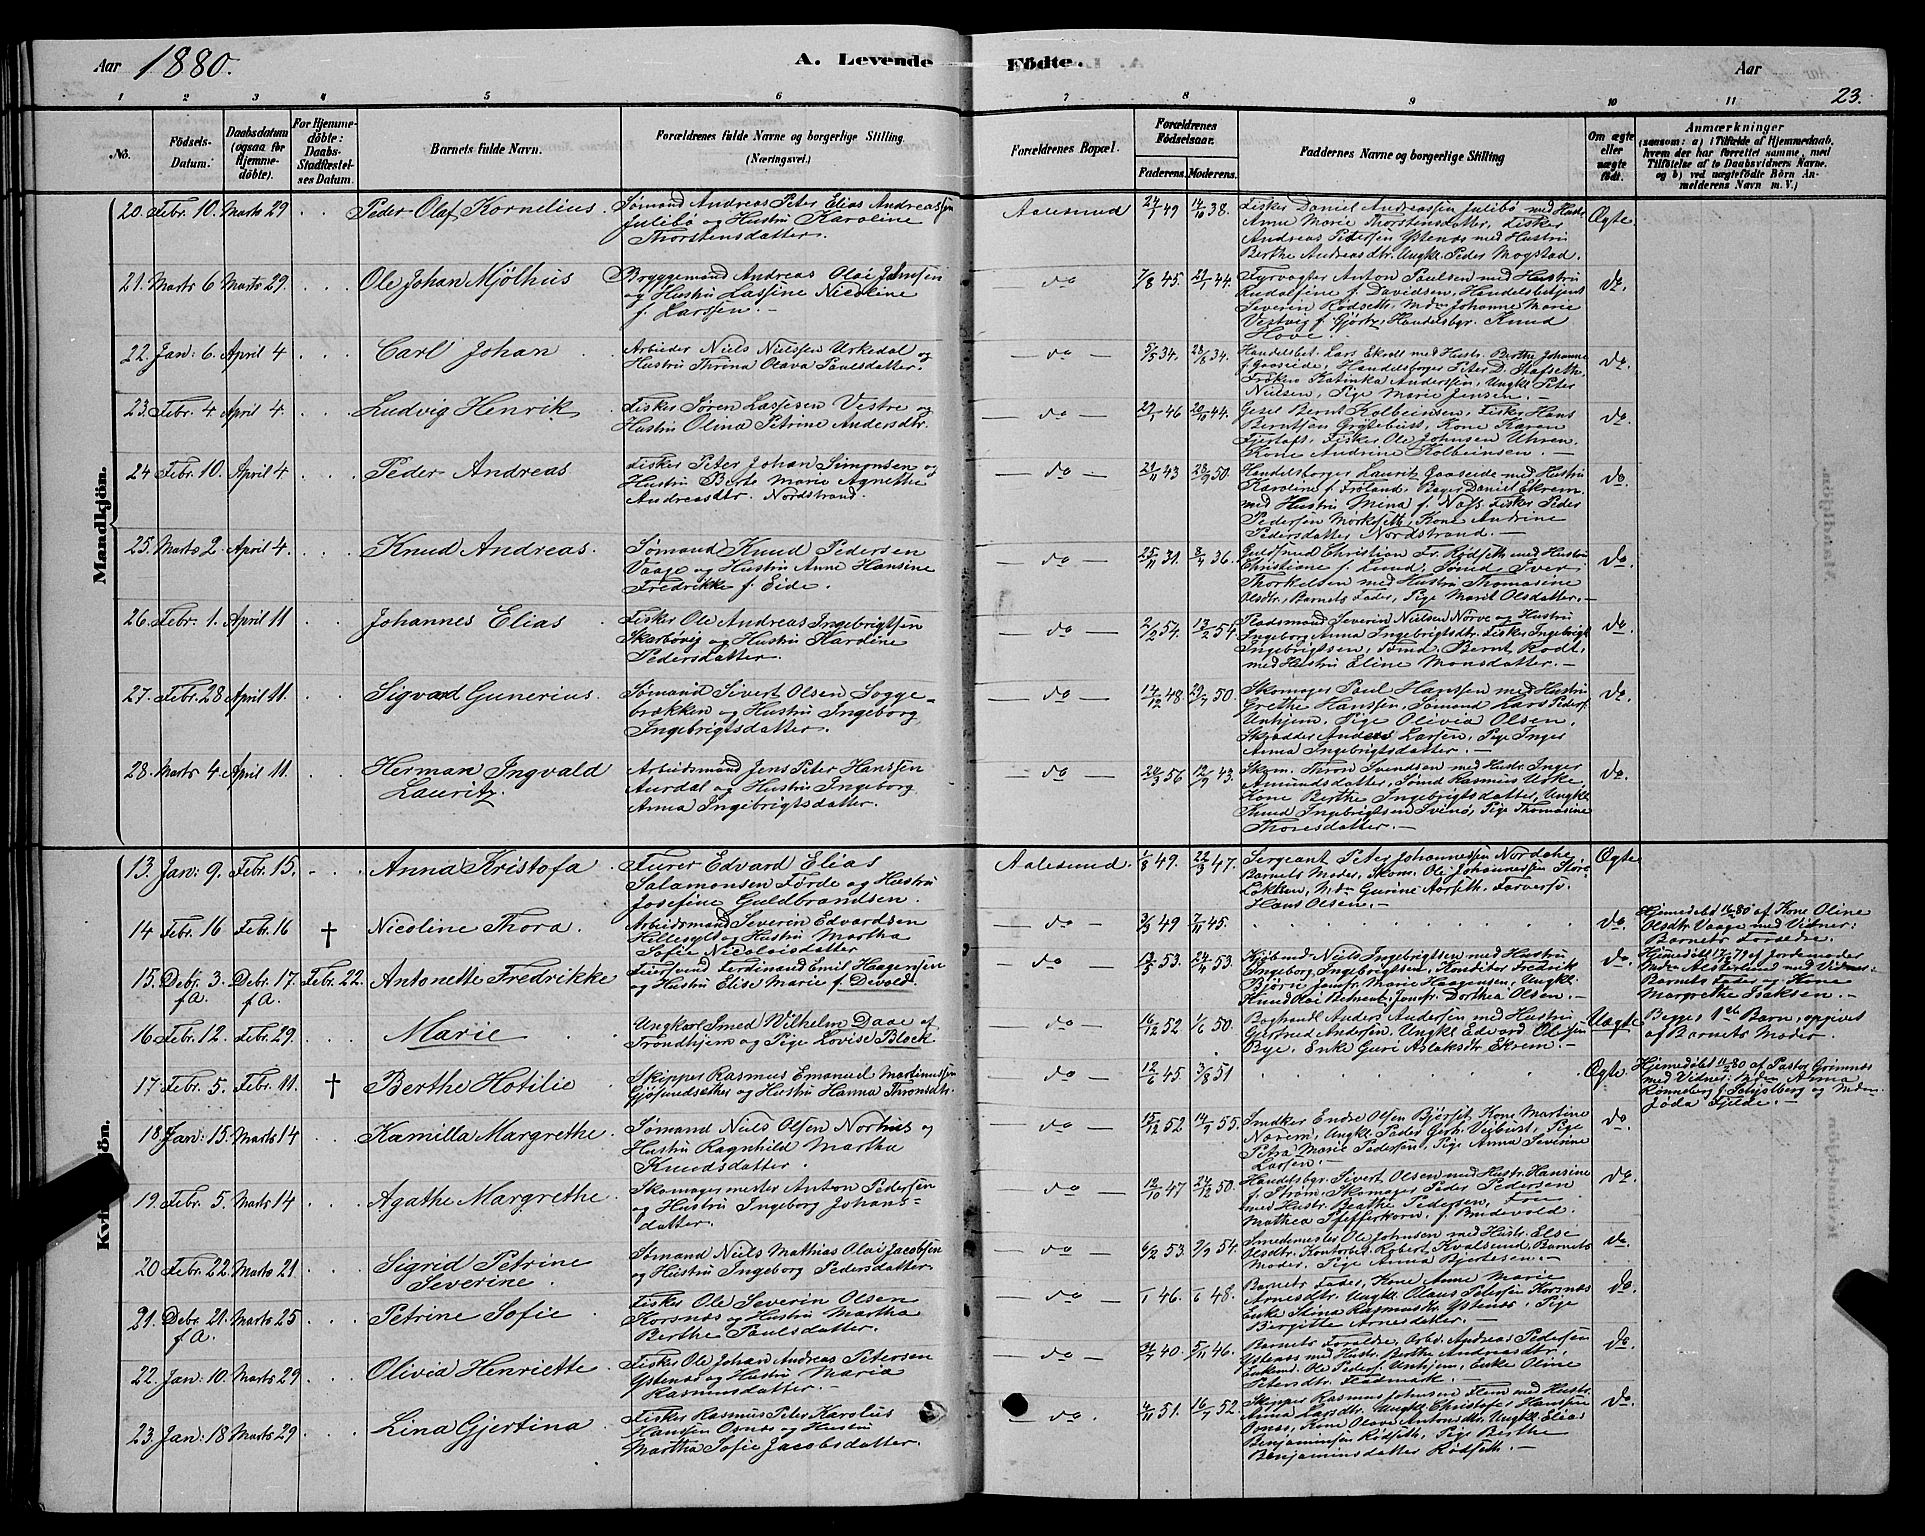 Aar 1880. A. Levende Födte. Aar 23.
1 2 3 4 5 6 7 8 9 10 11
No.
Födsels-
Datum.
Daabsdatum
(ogsaa for
Hjemme-
döbte).
For Hjemme-
döbte:
Daabs-
Stadfæstel-
ses Datum.
Barnets fulde Navn.
Forældrenes fulde Navne og borgerlige Stilling
(Næringsvei.)
Forældrenes Bopæl.
Forældrenes
Födselsaar.
Faderens. Moderens.
Faddernes Navne og borgerlige Stilling
Om ægte
eller
uægte
födt.
Anmærkninger
(saasom: a) i Tilfælde af Hjemmedaab,
hvem der har forrettet samme, med
Tilföielse af to Daabsvidners Navne.
og b) ved uægtefödte Börn An-
melderens Navn m. V.)
Mandkjön.
20. Febr. 10. Marts 29 Peder Olaf Kornelius.
Sømand Andreas Peter Elias Andreassen
Julibø og Hustru Karoline
Thorstensdatter.
Aalesund 24/1 49 14/10 38.
Fisker Daniel Andreassen Julibø med Hustr.
Anne Marie Thorstensdatter, Fisker
Andreas Pedersen Ystenes med Hustru
Berthe Andreasdtr. Ungkl. Peder Mogstad.
Ægte.
21. Marts 6 Marts 29. Ole Johan Mjølhus
Bryggemand Andreas Olai Johnsen
og Hustru Lassine Nicoline
f. Larssen.
do 7/8 45. 21/1 44.
Fyrvogter Anton Paulsen med Hustru
Rudolfine f. Davidsen, Handelsbetjent
Severin Rødseth, Mdm Johanne Marie
Vestvig f. Gjørtz, Handelsbgr. Knud
Hove
do.
22. Jan: 6. April 4 Carl Johan
Arbeider Niels Nielssen Urkedal og
Hustru Thrina Olava Paulsdatter.
do 5/5 34. 28/8 34.
Handelsbet. Lars Ekroll med Hustr. Berthe Johanne
f. Gaaseide, Handelsborger Peter D. Stafseth,
Frøken Katinka Anderssen, Ungkl. Peter
Nielsen, Pige Marie Jensen.
do.
23. Febr. 4 April 4 Ludvig Henrik
Fisker Søren Lassesen Vestre og
Hustru Olina Petrine Andersdtr.
do 29/1 46 20/10 44.
Gesel Bernt Kolbeinsen, Fisker Hans
Berntsen Grytebust, Kone Karen
Fjertoft, Fisker Ole Johnsen Uhren
Kone Andrine Kolbeinsen.
do.
24 Febr. 10. April 4 Peder Andreas
Fisker Peter Johan Simonsen og
Hustru Berte Marie Agnethe
Andreasdtr. Nordstrand.
do 21/11 43 28/9 50.
Handelsborger Laurit Gaaseide med Hustru
Karoline f. Frøland, Bager Daniel Ekrem
med Hustru Mina f. Næss. Fisker Peder
Pedersen Morkeseth, Kone Andrine
Pedersdatter Nordstrand.
do.
25. Marts 2. April 4. Knud Andreas.
Sømand Knud Pedersen
Vaage og Hustru Anne Hansine
Fredrikke f. Eide.
do 25/11 31. 8/4 36.
Guldsmed Christian Fr. Rødseth med Hustru
Christiane f. Lund, Smed Iver
Thorkelsen med Hustru Thomasine
Olsdtr., Barnets Fader, Pige Marit Olsdatter.
do
26. Febr. 1. April 11 Johannes Elias
Fisker Ole Andreas Ingebrigtsen
Skarbøvig og Hustru Hardine
Pedersdatter.
do 2/12 57. 13/2 54.
Pladsmand Severin Nielsen Nørve og Hustru
Ingeborg Anna Ingebrigtsdtr. Fisker Ingebrigt
Ingebrigtsen, Smd. Bernt Rodt,
med Hustru Eline Monsdatter.
do
27. Febr. 28 April 11. Sigvard Gunerius.
Sømand Sivert Olsen Sogge-
brækken og Hustru Ingeborg
Ingebrigtsdatter.
do 14/12 48 29/7 50.
Skomager Paul Hanssen med Hustru
Grethe Hanssen, Sømand Lars Peders.
Unhjem. Pige Olivia Olsen,
Skrædder Anders Larsen, Pige Inger
Anna Ingebrigtsdatter.
do
28. Marts 4 April 11. Herman Ingvald
Lauritz.
Arbeidsmand Jens Peter Hanssen
Aurdal og Hustru Ingeborg
Anna Ingebrigtsdatter.
do 24/3 56 12/9 43.
Skom. Thron Svendsen med Hustr. Inger
Amundsdatter, Smd Rasmus Urke
Kone Berthe Ingebrigtsdatter, Ungkl.
Knud Ingebrigtsen Svinø, Pige Thomasine
Thoresdatter.
do.
Kvindekjön.
13. Jan: 9. Febr. 15. Anna Kristofa
Furer Edvard Elias
Salamonsen Førde og Hustru
Josefine Guldbrandsen.
Aalesund. 1/8 49. 22/3 47.
Sergeant Peter Johannessen Nordahe
Barnets Moder, Skom. Ole Johannessen Store
Løkken, Mdm Gurine Aarseth. Farversv.
Hans Olsen.
Ægte
14 Febr. 16 Febr. 16 † Nicoline Thora.
Arbeidsmand Severin Edvardsen
Hellesylt og Hustru Martha
Sofie Nicolaisdatter
do 3/3 49 7/11 45. do.
Hjemedøbt 16/2 80 af Kone Oline
Olsdtr. Vaage med Vidner:
Barnets Forældre.
15. Debr. 3. Debr. 17. Febr. 22. Antonette Fredrikke
f.A. f.A.
Feiersvend Ferdinand Emil Haagensen
og Hustru Elise Marie f. Devold.
do 13/5 53. 24/4 53.
Kjøbmd Niels Ingebrigtsen med Hustru
Ingeborg Ingebrigtsen, Konditor Fredrik
Bjørse Jomfr. Marie Haagensen, Ungkl.
Knud Olai Behrent, Jomfr. Dorthea Olsen.
do.
Hjemedøbt 17/12 79 af Jordemoder
Mdm Alsterlund med Vidner:
Barnets Fader og Kone
Margrethe Isaksen.
16 Febr. 12. Febr. 29. Marie
Ungkarl Smed Wilhelm Daae af
Trondhjem og Pige Lovise Block
do 16/12 52 1/6 50.
Boghandl. Anders Andersen med Hustru
Gjertrud Andersen, Ungkl. Edvard Olsen
Bye. Enke Guri Aslaksdtr Ekrem.
Uægte
Begges 1ste Barn, opgivet
af Barnets Moder
17 Febr. 5. Febr. 11. † Berthe Hotilie
Skipper Rasmus Emanuel Martinussen
Gjøsundsæther og Hustru Hanna Thronsdtr.
do 12/6 45. 3/8 51 Ægte.
Hjemedøbt 11/2 80 af Pastor Grimnes
med Vidner: Mdm Anna
Rønneberg f. Schjølberg og Mdm
Joda Fjelde.
18. Jan: 15. Marts 14 Kamilla Margrethe.
Sømand Niels Olsen Nørhues og
Hustru Ragnhild Martha
Knudsdatter.
do 15/12 52 14/9 55.
Smdker Endre Olsen Bjørset, Kone Martine
Norem, Ungkl. Peder Gert. Veibust, Pige
Petra Marie Pedersen, Pige Anna Severine
Larsen.
do.
19. Febr. 5. Marts 14 Agathe Margrethe
Skomagermester Anton Pedersen
og Hustru Ingeborg Johans-
datter.
do 12/10 47 24/12 50.
Handelsbgr. Sivert Olsen med Hustr. Hansine
f. Strøm, Skomager Peder Pedersen
med Hustr. Beathe Pedersen, Frue
Mathea Pfefferkorn f. Budevold.
do.
20 Febr. 22. Marts 21. Sigrid Petrine
Severine.
Sømand Niels Mathias Olai Jacobsen
og Hustru Ingeborg Pedersdatter.
do 6/2 53. 9/9 54.
Smedemester Ole Johnsen med Hustr. Else
Olsdtr. Kontorbet. Robert Kvalsund, Barnets
Moder, Pige Anna Bjertesen.
do
21. Debr. 21. Marts 25 Petrine Sofie
f.A.
Fisker Ole Severin Olsen
Korsnes og Hustru Martha
Berthe Paulsdatter.
do 46. 48.
Barnets Fader, Kone Anne Marie
Arnesdtr. Ungkl. Olaus Petersen Korsnes
Enke Stina Rasmusdtr. Ystenes, Pige
Birgitte Arnesdatter.
do.
22. Jan: 10. Marts 29 Olivia Henriette
Fisker Ole Johan Andreas Petersen
Ystenes og Hustru Maria
Rasmusdatter.
do 21/7 40 5/11 46.
Barnets Forældre, Arbd. Andreas Pedersen
Ystenes med Hustr. Berthe Andreasdtr.,
Enkmd. Ole Peders. Unhjem, Enke Oline
Petersdtr. Fladmark.
do.
23. Jan: 18 Marts 29 Lina Gjertina
Fisker Rasmus Peter Karolius
Hanssen Ognes og Hustru
Martha Sofie Jacobsdatter.
do. 4/11 51. 16/7 52.
Skipper Rasmus Johnsen Flem med Hustr.
Anna Larsdtr. Ungkl. Christofer Hanssen
Ognes, Kone Olave Antonsdtr. Ungkl. Elias
Benjaminsen Rødseth, Pige Berthe
Benjaminsdatter Rødseth.
do.